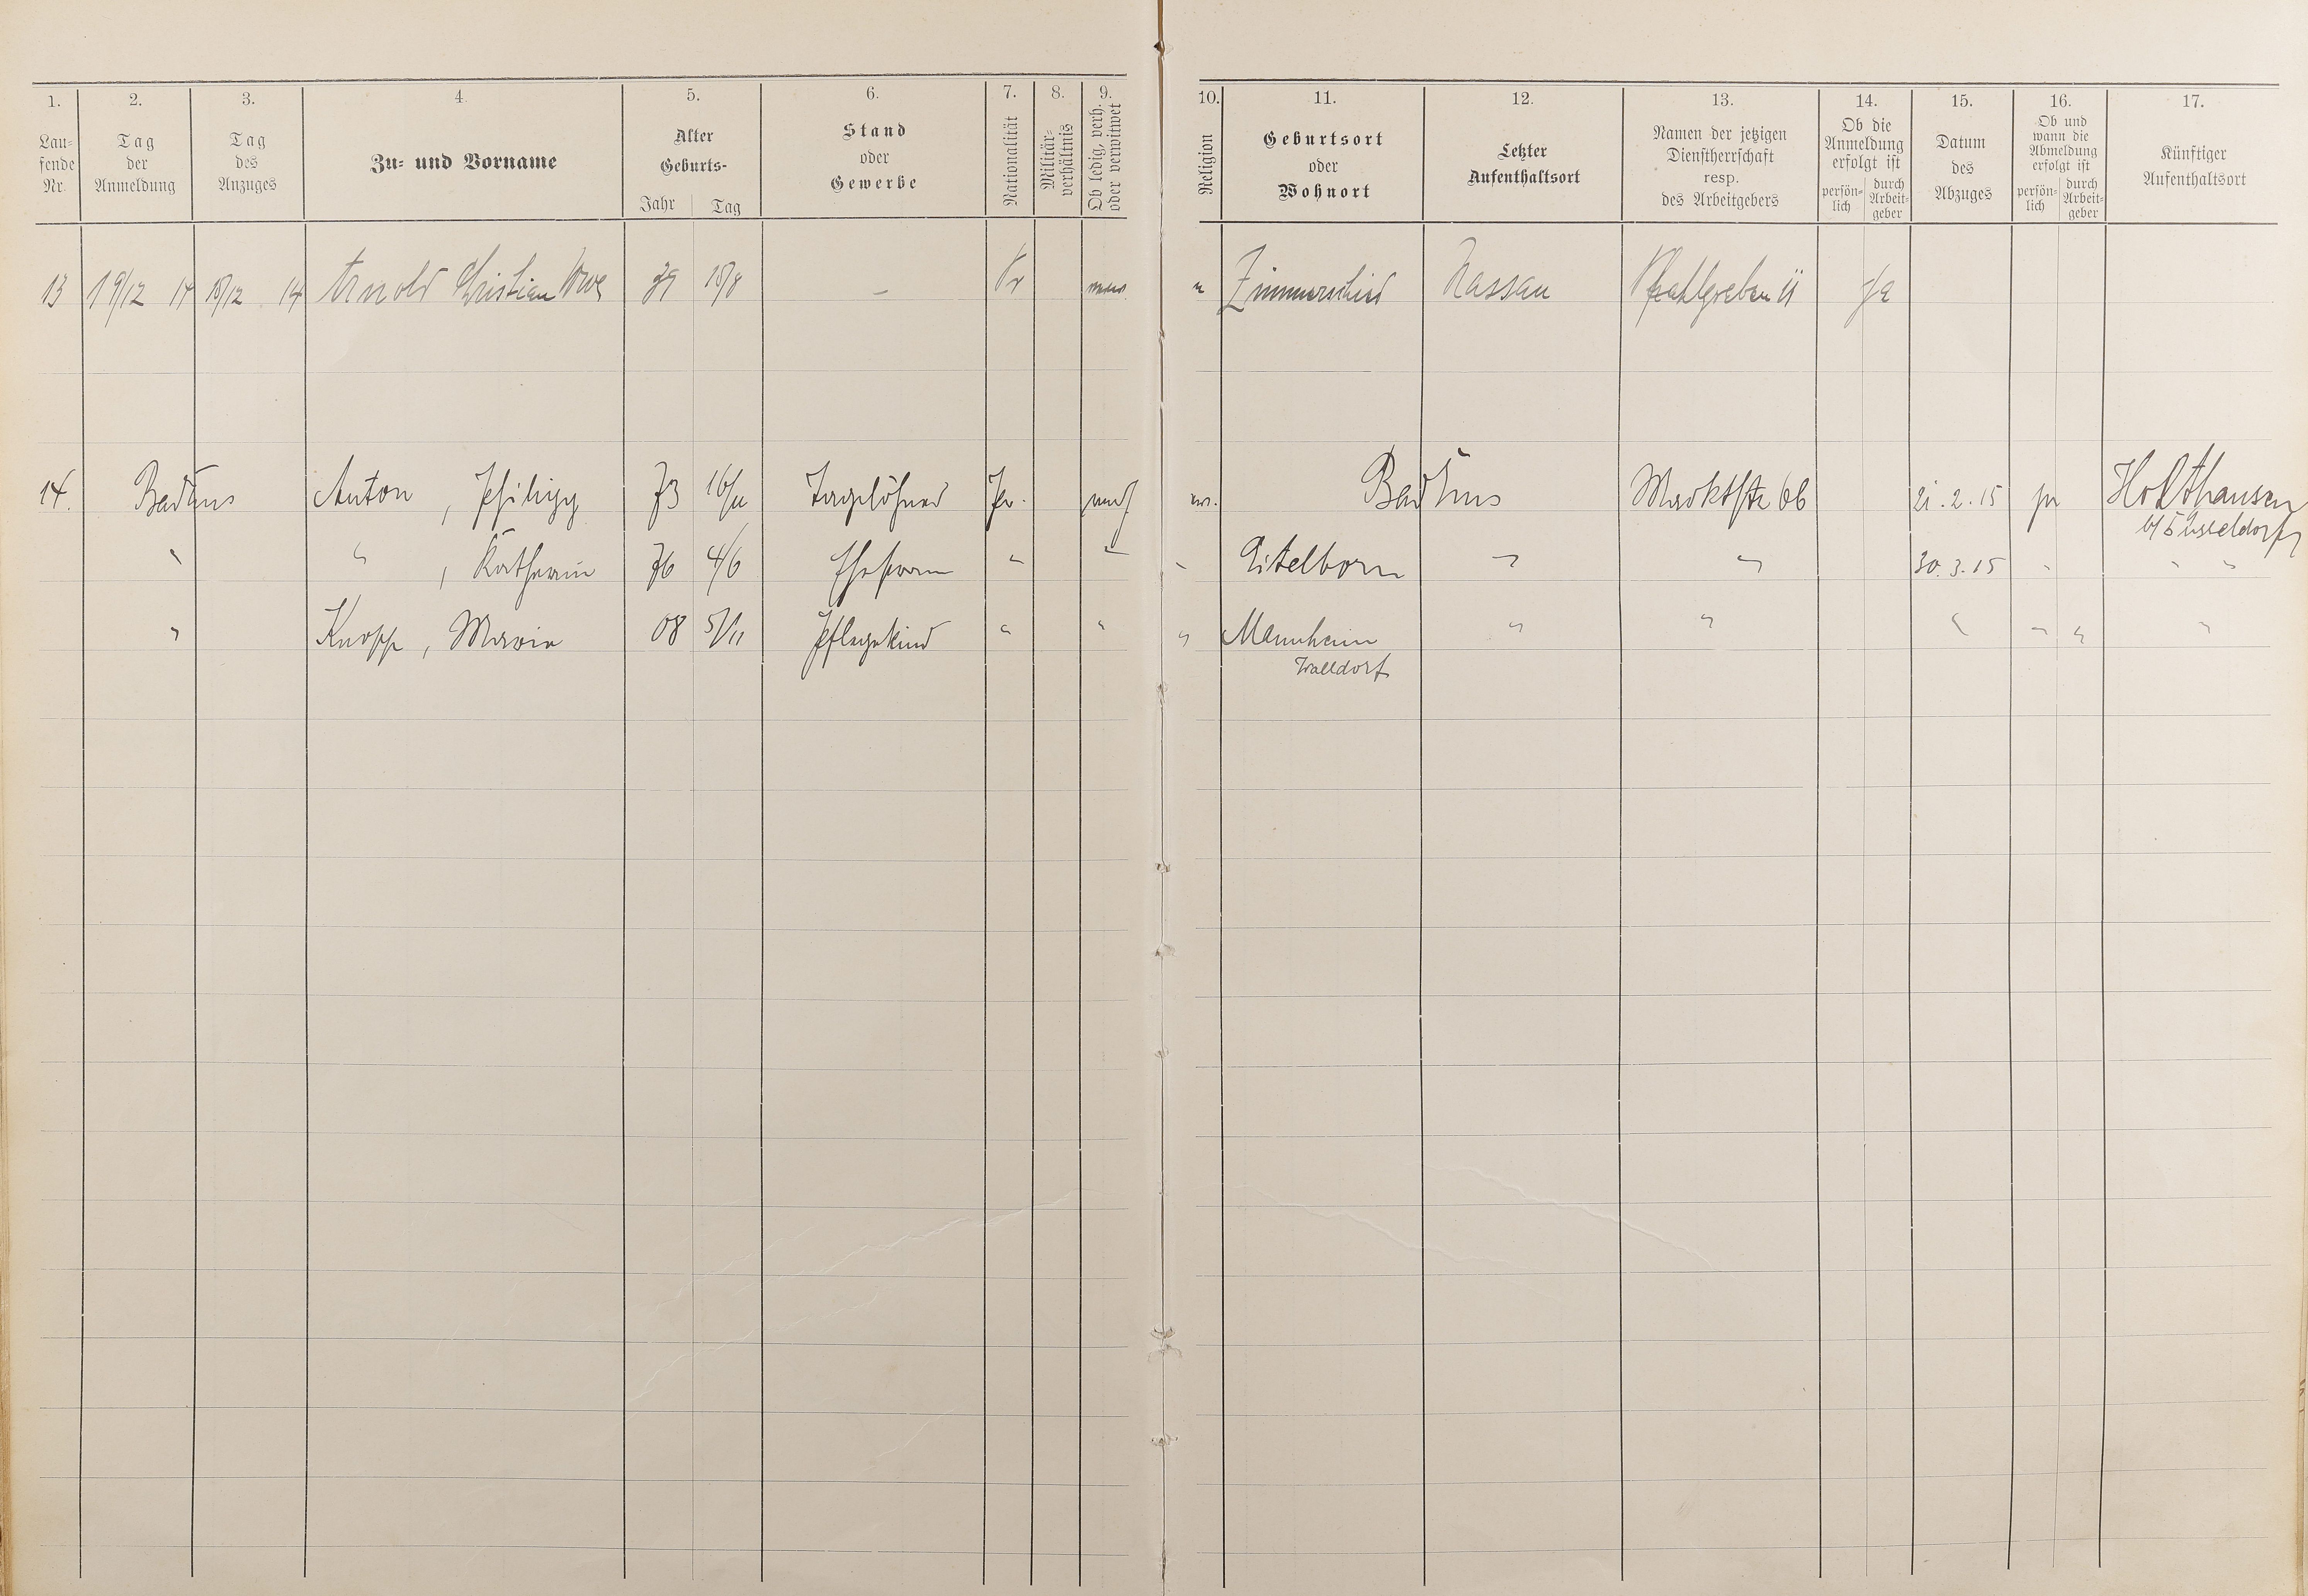 1. 2. 3. 4. 5. 6. 7. 8. 9. 10. 11. 12. 13. 14. 15. 16. 17.
Lau-
fende
Nr.
Tag
der
Anmeldung
Tag
des
Anzuges
Zu- und Vorname
Alter
Geburts-
Jahr Tag
Stand
oder
Gewerbe
Nationalität
Militär-
verhältnis
Ob ledig, verh.
oder verwitwet
Religion
Geburtsort
oder
Wohnort
Letzter
Aufenthaltsort
Namen der jetzigen
Dienstherrschaft
resp.
des Arbeitgebers
Ob die
Anmeldung
erfolgt ist
persön-
lich
durch
Arbeit-
geber
Datum
des
Abzuges
Ob und
wann die
Abmeldung
erfolgt ist
persön-
lich
durch
Arbeit-
geber
Künftiger
Aufenthaltsort
13 19/12 14 18/12 14 Arnold Christian Wwe 18/8 – Pr Zimmerschied Nassau Pfahlgraben 11 Ja
14. Bad Ems Anton, Philipp 73 16/11 Taglöhner Pr. Bad Ems Marktstr 66 21.2.15 Holthausen
b/Düsseldorf
" " , Katharin 76 4/6 Ehefrau " " " Eitelborn " " 30.3.15 " " "
" Knopp, Maria 08 5/11 Pflegekind " " " Mannheim " " " " " "
Walldorf